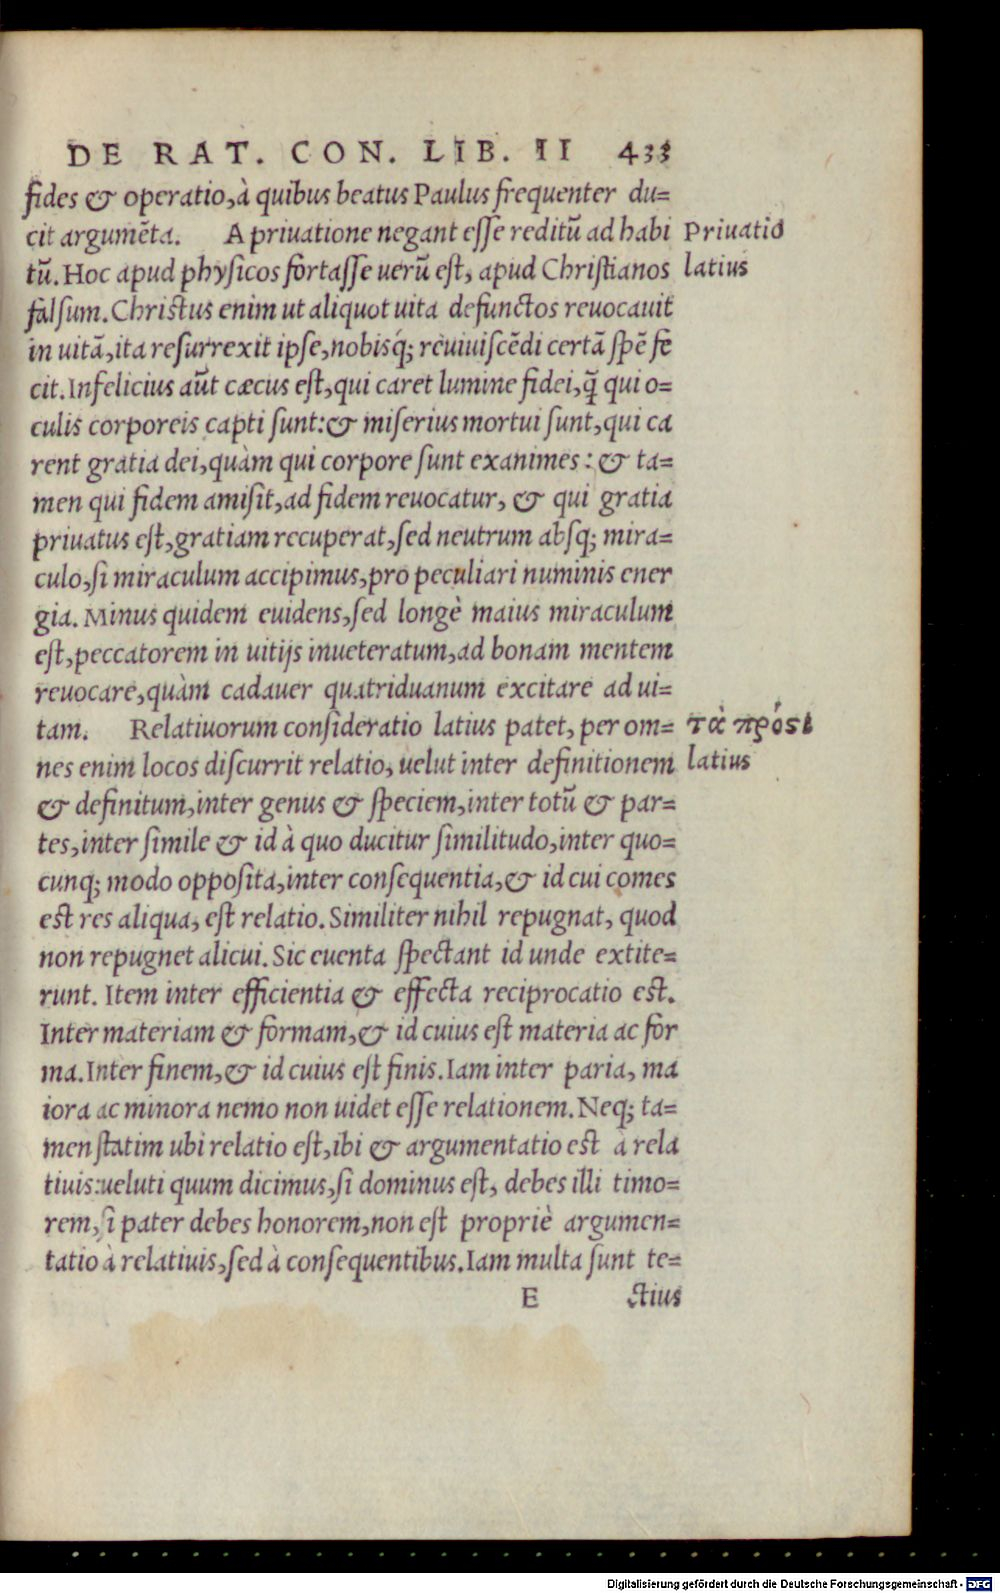 DE RAT. CON. LIB. II 433
fides & operatio, à quibus beatus Paulus frequenter du=
cit argumēta. A priuatione negant esse reditū ad habi
Priuatio
tū. Hoc apud physicos fortasse uerū est, apud Christianos
latius
falsum. Christus enim ut aliquot uita defunctos reuocauit
in uitā, ita resurrexit ipse, nobisq́; reuiuiscēdi certā spē fe
cit. Infelicius aūt cæcus est, qui caret lumine fidei, q̄ qui o=
culis corporeis capti sunt: & miserius mortui sunt, qui ca
rent gratia dei, quàm qui corpore sunt exanimes: & ta=
men qui fidem amisit, ad fidem reuocatur, & qui gratia
priuatus est, gratiam recuperat, sed neutrum absq; mira=
culo, si miraculum accipimus, pro peculiari numinis ener
gia. Minus quidem euidens, sed longè maius miraculum
est, peccatorem in uitijs inueteratum, ad bonam mentem
reuocare, quàm cadauer quatriduanum excitare ad ui=
tam. Relatiuorum consideratio latius patet, per om=
τὰ πρόστι
nes enim locos discurrit relatio, uelut inter definitionem
latius
& definitum, inter genus & speciem, inter totū & par=
tes, inter simile & id à quo ducitur similitudo, inter quo=
cunq; modo opposita, inter consequentia, & id cui comes
est res aliqua, est relatio. Similiter nihil repugnat, quod
non repugnet alicui. Sic euenta spectant id unde extite=
runt. Item inter efficientia & effecta reciprocatio est.
Inter materiam & formam, & id cuius est materia ac for
ma. Inter finem, & id cuius est finis. Iam inter paria, ma
iora ac minora nemo non uidet esse relationem. Neq; ta=
men statim ubi relatio est, ibi & argumentatio est à rela
tiuis: ueluti quum dicimus, si dominus est, debes illi timo=
rem, si pater debes honorem, non est propriè argumen=
tatio à relatiuis, sed à consequentibus. Iam multa sunt te=
E ctius
Digitalisierung gefördert durch die Deutsche Forschungsgemeinschaft - DFG